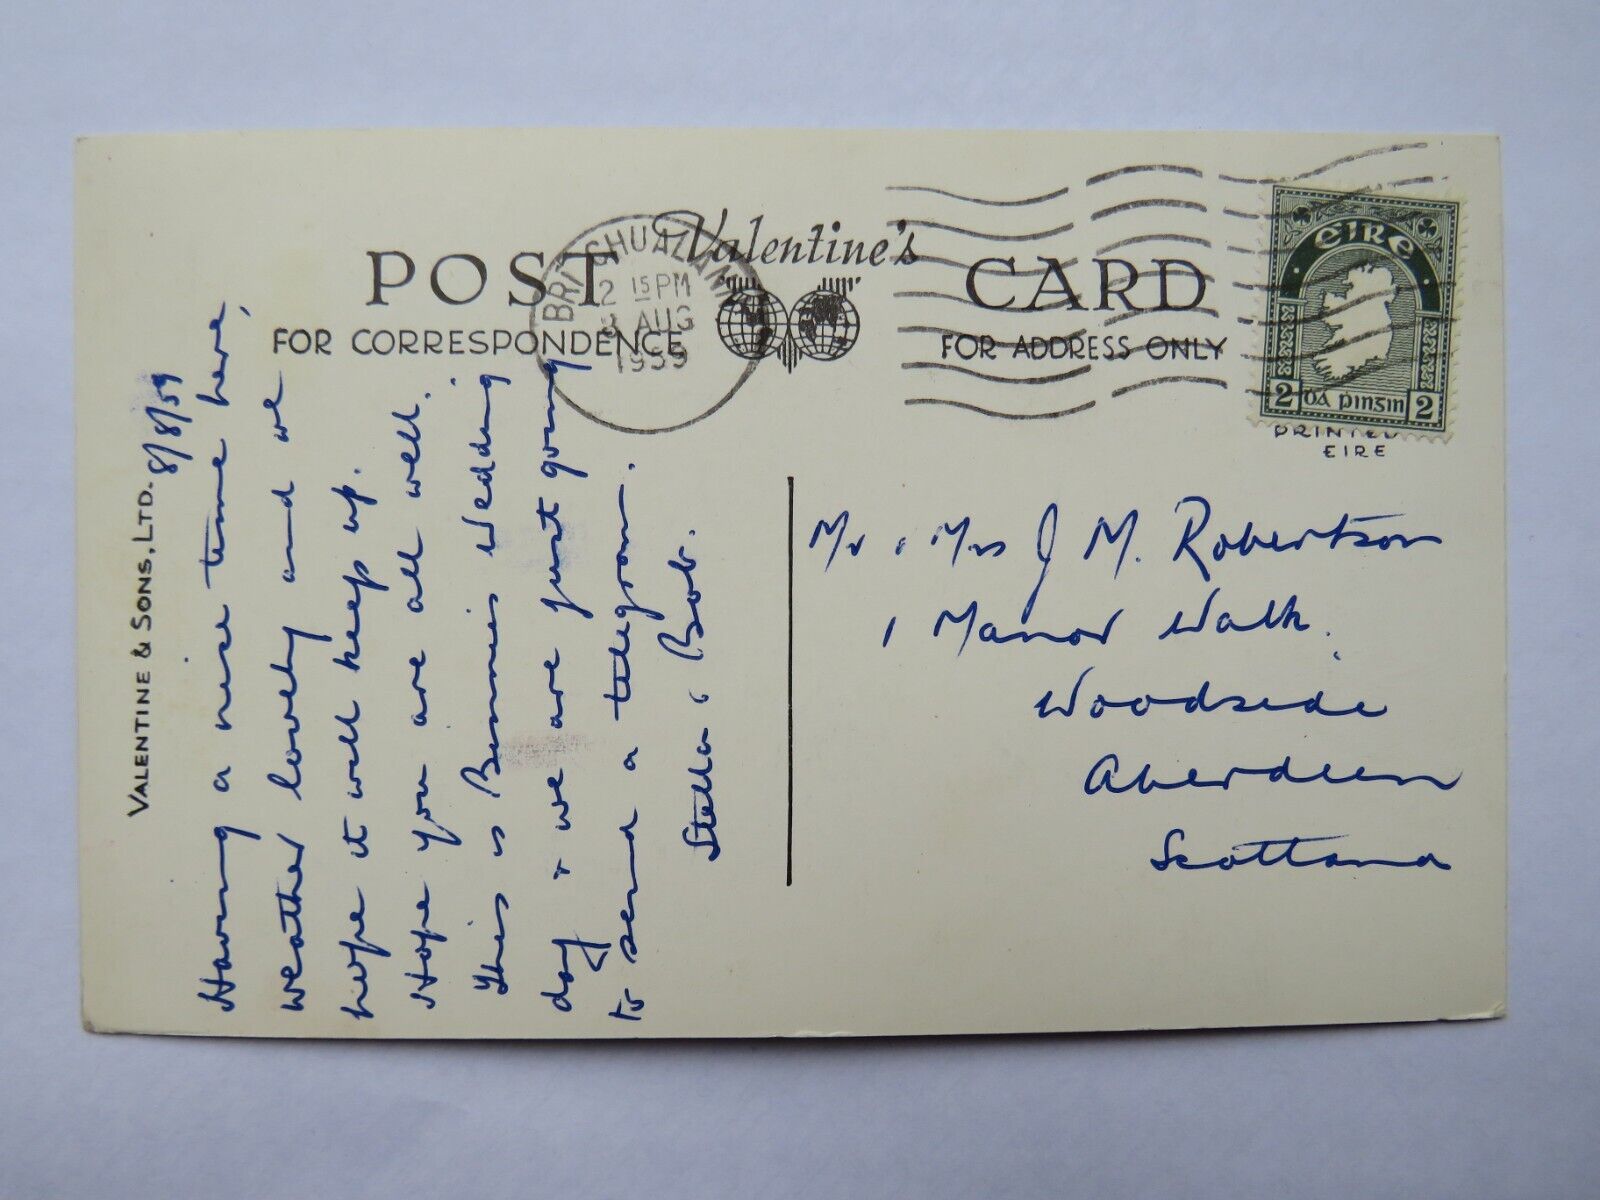 Valentine's
POST CARD
FOR CORRESPONDENCE
FOR ADDRESS ONLY
BRI CHUALANN
2 15 PM
8 AUG
1959
EIRE
2 DÁ PINGIN 2
PRINTED
EIRE
VALENTINE & SONS, LTD.
8/8/59
Having a nice time here,
weather lovely and we
hope it will keep up.
Hope you are all well.
This is Bennies Wedding
day & we are just going
to send a telegram.
Stella & Bob.
Mr & Mrs J M. Robertson
1 Manor Walk.
Woodside
Aberdeen
Scotland